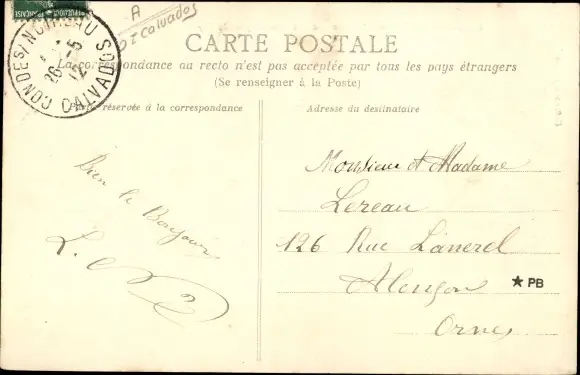 A
Dt Calvados
CONDÉ S/ NOIREAU CALVADOS
26 -5 12
CARTE POSTALE
La correspondance au recto n'est pas acceptée par tous les pays étrangers
(Se renseigner à la Poste)
Partie réservée à la correspondance
Adresse du destinataire
Bien le Bonjour
L.
Monsieur et Madame
Lereau
126 Rue Lanerel
Alençon
Orne
★ PB